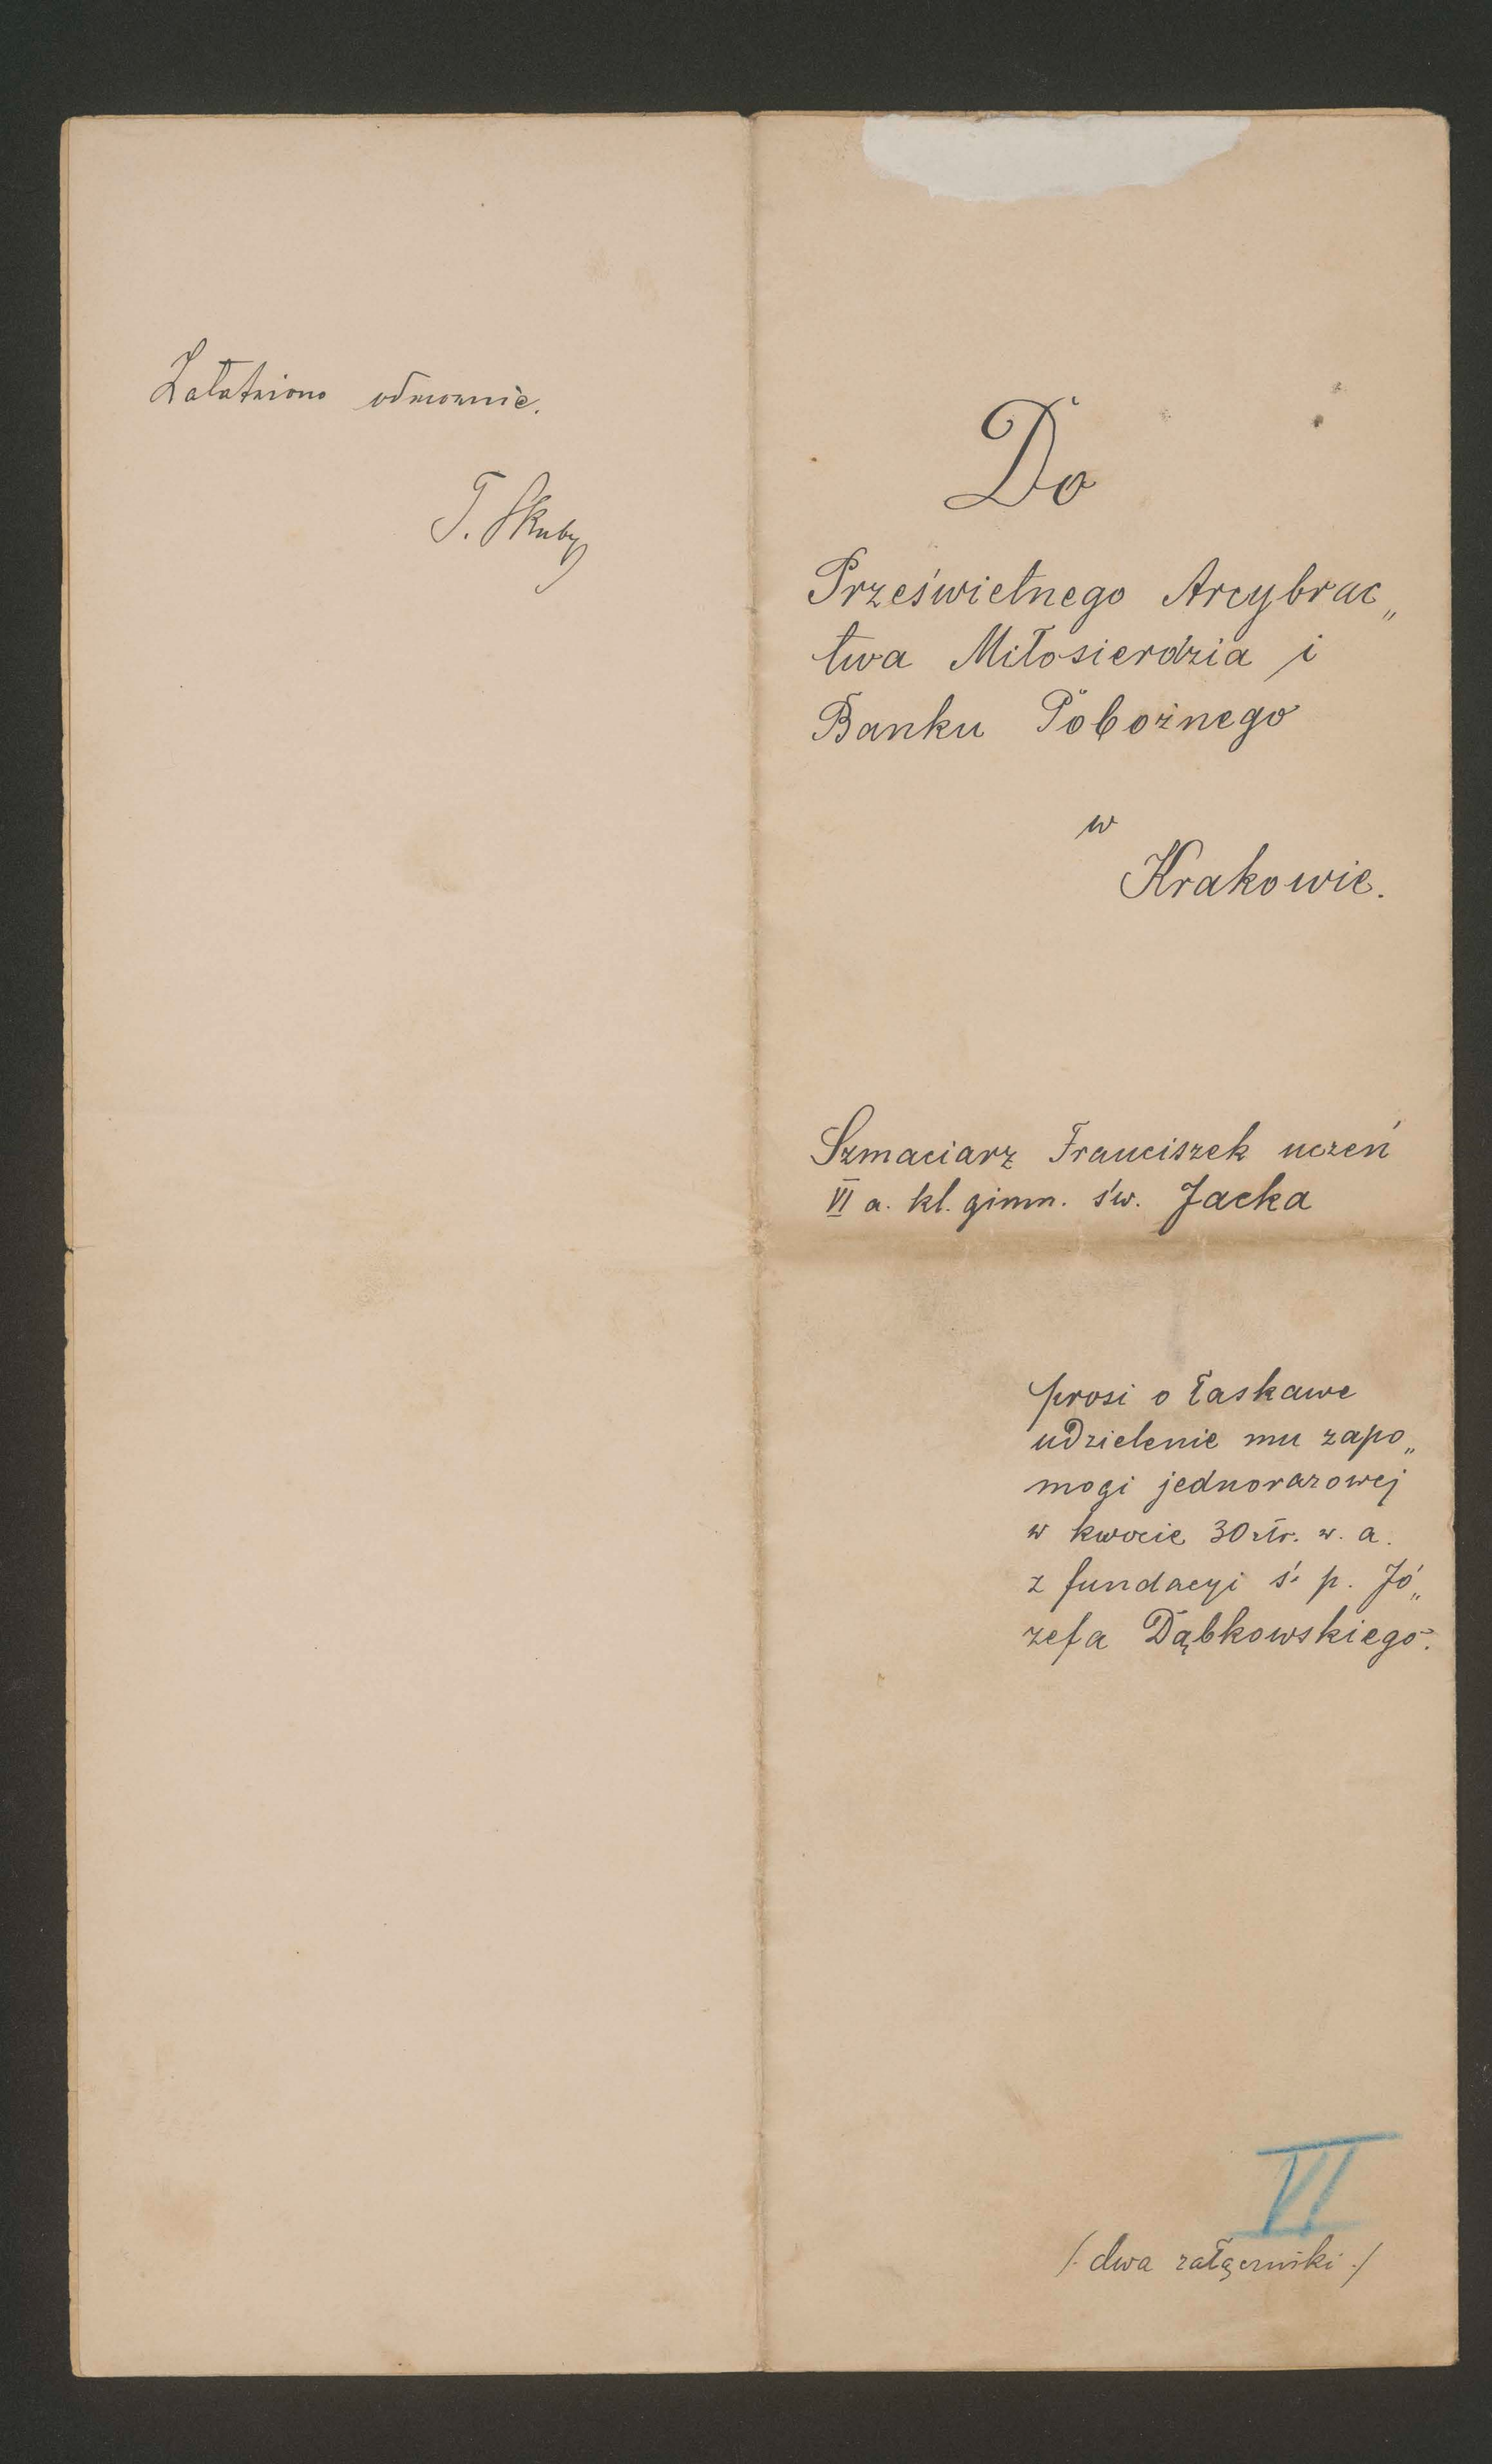 Załatwiono odmownie.
T. Skuby
Do
Prześwietnego Arcybrac„
twa Miłosierdzia i
Banku Pobożnego
w
Krakowie.
Szmaciarz Franciszek uczeń
VI a. kl. gimn. św. Jacka
prosi o łaskawe
udzielenie mu zapo„
mogi jednorazowej
w kwocie 30 złr. w. a.
z fundacyi ś. p. Jó„
zefa Dąbkowskiego.
VI
/. dwa załączniki ./